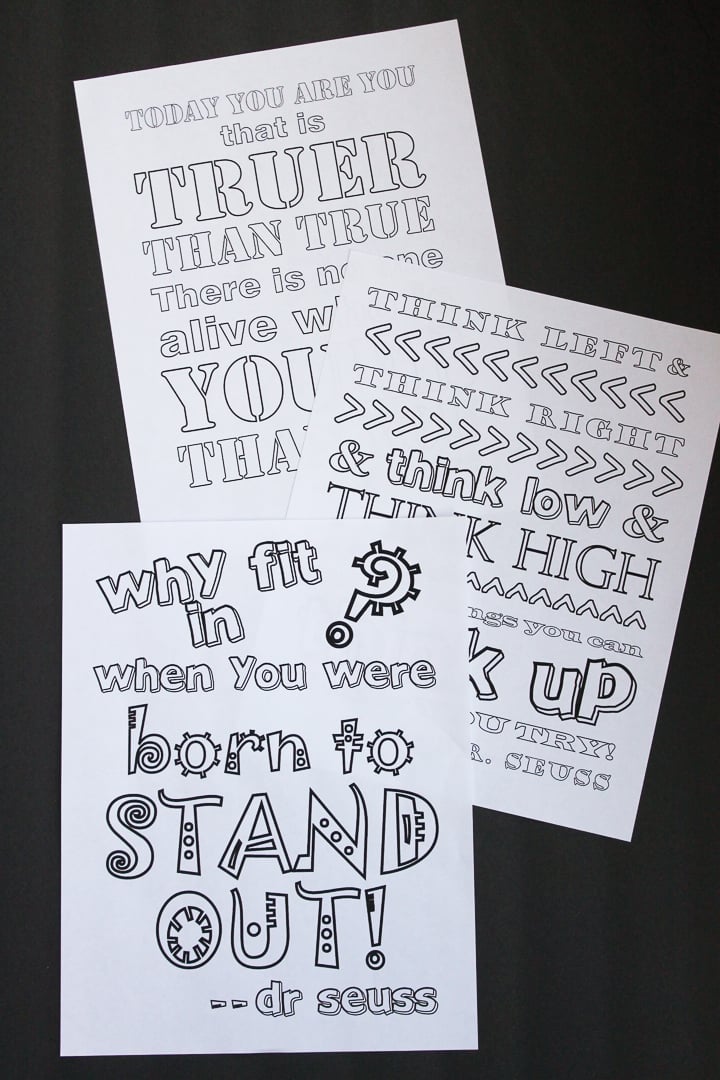 TODAY YOU ARE YOU
that is
TRUER
THAN TRUE
There is no one
alive
YOU
THA
THINK LEFT &
<<<<<<<<<<<
THINK RIGHT
>>>>>>>>>>>>
& think low &
THINK HIGH
you can
k up
YOU TRY!
R. SEUSS
why fit
in ?
when you were
born to
STAND
OUT!
--dr seuss